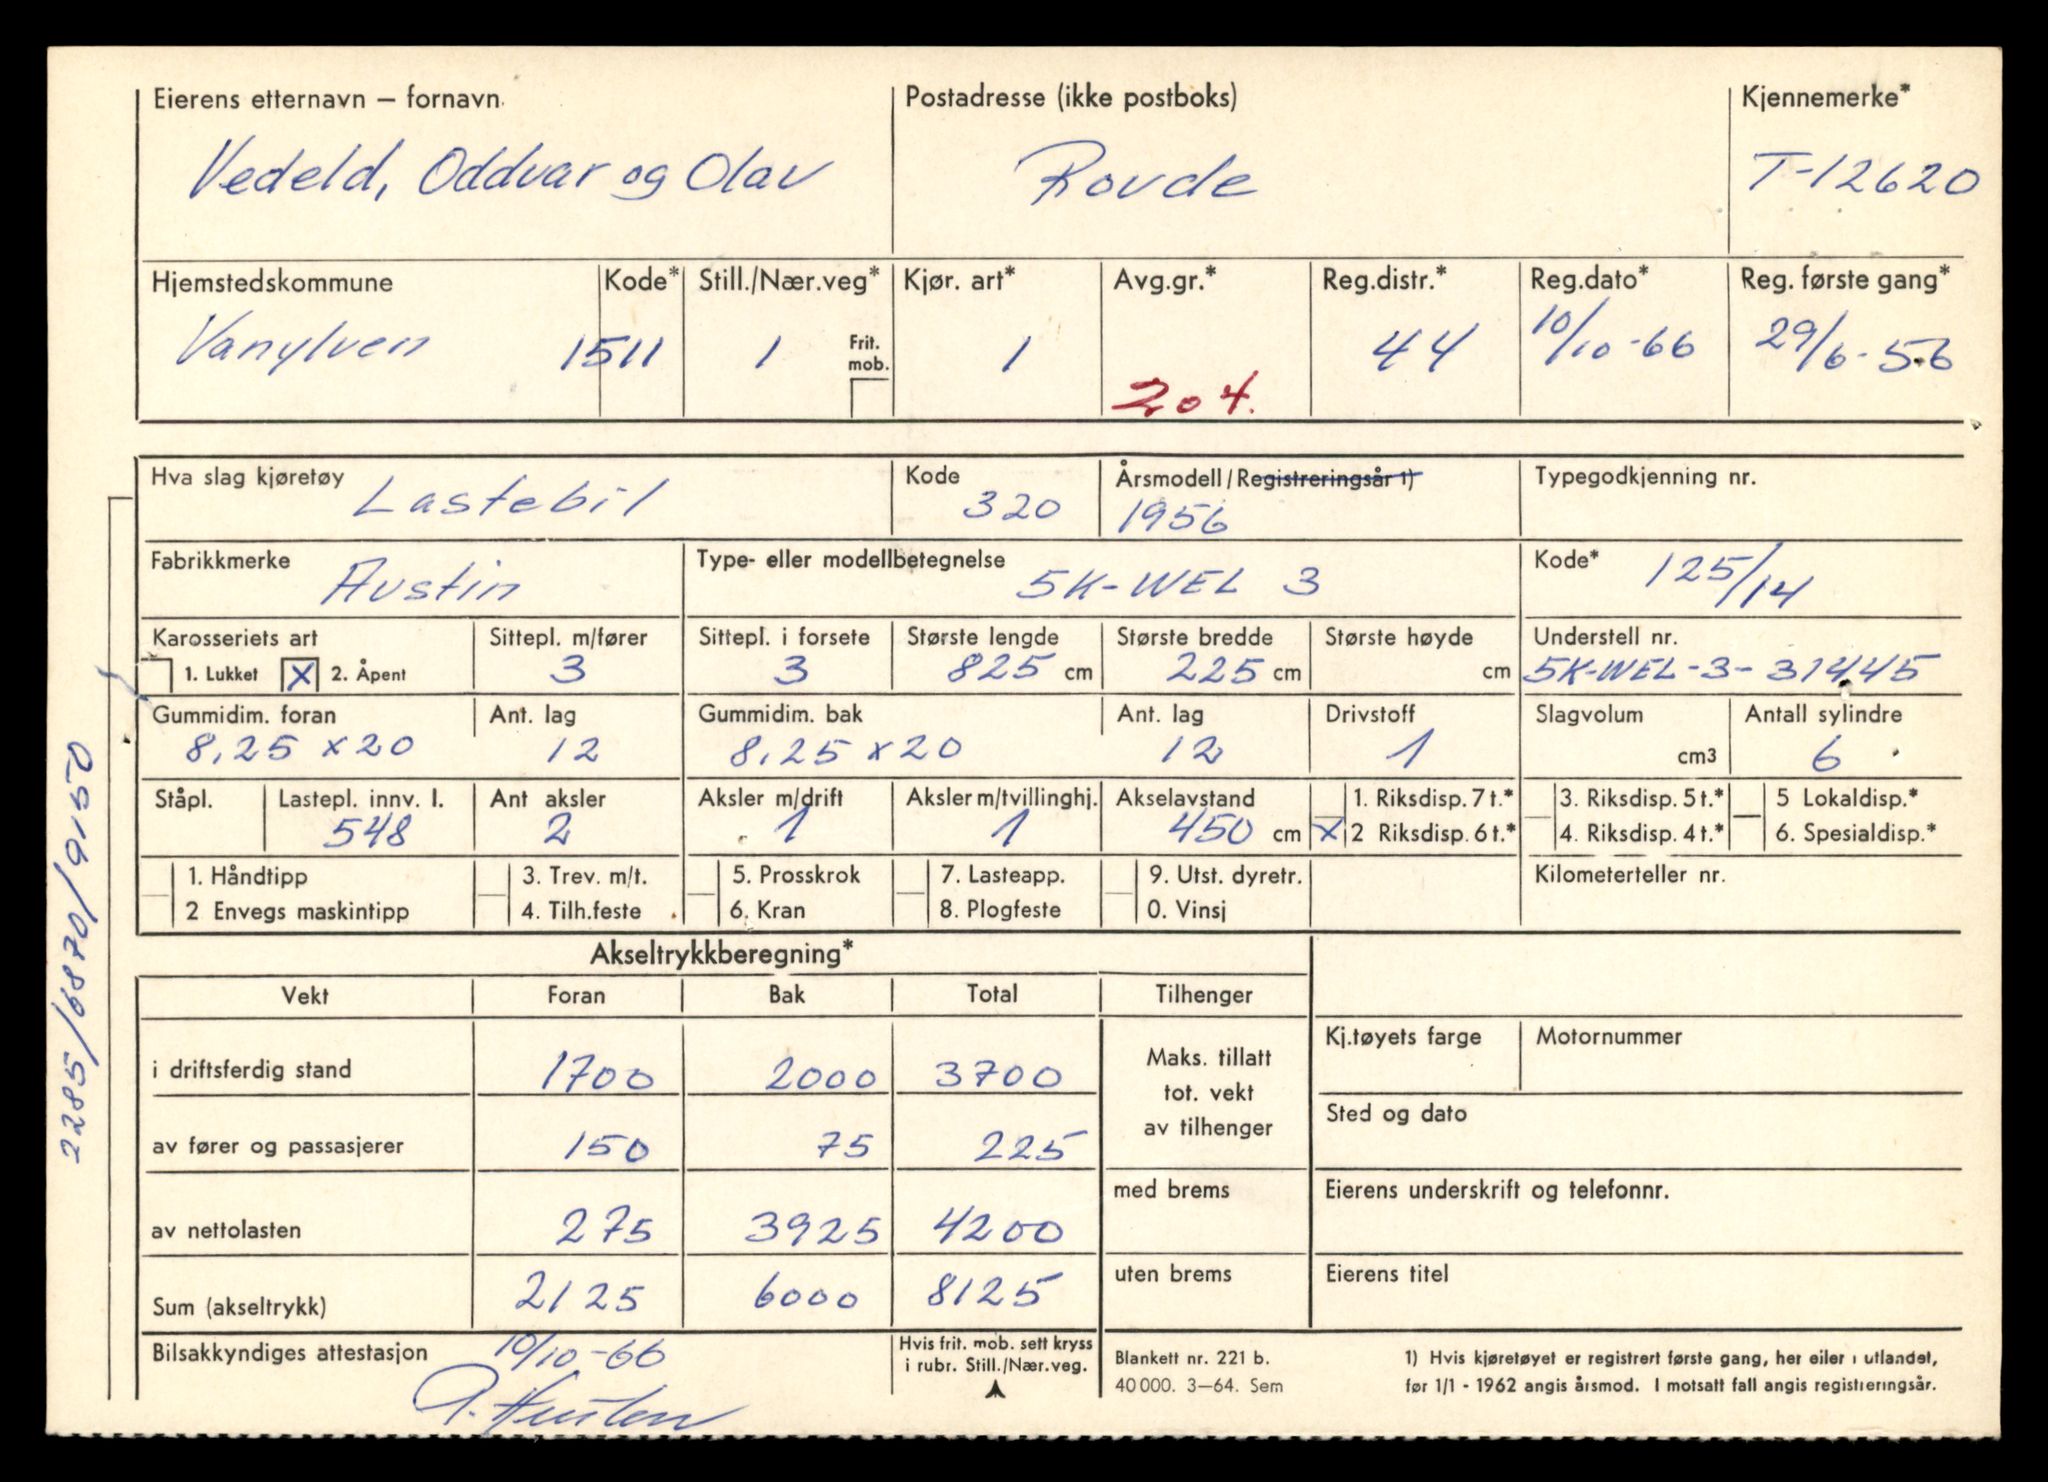 Eierens etternavn – fornavn
Postadresse (ikke postboks)
Kjennemerke*
Vedeld, Oddvar og Olav
Rovde
T-12620
Hjemstedskommune
Kode*
Still./Nær.veg*
Kjør. art*
Avg.gr.*
Reg.distr.*
Reg.dato*
Reg. første gang*
Vanylven
1511
1
Frit. mob.
1
204.
44
10/10-66
29/6-56
Hva slag kjøretøy
Lastebil
Kode
320
Årsmodell/Registreringsår 1)
1956
Typegodkjenning nr.
Fabrikkmerke
Austin
Type- eller modellbetegnelse
5K-WEL 3
Kode*
125/14
Karosseriets art
1. Lukket
X 2. Åpent
Sittepl. m/fører
3
Sittepl. i forsete
3
Største lengde
825 cm
Største bredde
225 cm
Største høyde
cm
Understell nr.
5K-WEL-3-31445
Gummidim. foran
8,25 x 20
Ant. lag
12
Gummidim. bak
8,25 x 20
Ant. lag
12
Drivstoff
1
Slagvolum
cm3
Antall sylindre
6
Ståpl.
Lastepl. innv. l.
548
Ant aksler
2
Aksler m/drift
1
Aksler m/tvillinghj.
1
Akselavstand
450 cm
1. Riksdisp. 7 t.*
X 2 Riksdisp. 6 t.*
3. Riksdisp. 5 t.*
4. Riksdisp. 4 t.*
5 Lokaldisp.*
6. Spesialdisp.*
1. Håndtipp
2 Envegs maskintipp
3. Trev. m/t.
4. Tilh.feste
5. Prosskrok
6. Kran
7. Lasteapp.
8. Plogfeste
9. Utst. dyretr.
0. Vinsj
Kilometerteller nr.
Akseltrykkberegning*
Vekt
Foran
Bak
Total
Tilhenger
i driftsferdig stand
1700
2000
3700
Maks. tillatt
tot. vekt
av tilhenger
Kj.tøyets farge
Motornummer
av fører og passasjerer
150
75
225
Sted og dato
av nettolasten
275
3925
4200
med brems
Eierens underskrift og telefonnr.
Sum (akseltrykk)
2125
6000
8125
uten brems
Eierens titel
Bilsakkyndiges attestasjon
10/10-66
Hvis frit. mob. sett kryss
i rubr. Still./Nær.veg.
Blankett nr. 221 b.
40 000. 3–64. Sem
1) Hvis kjøretøyet er registrert første gang, her eller i utlandet,
før 1/1 - 1962 angis årsmod. I motsatt fall angis registreringsår.
2285/6870/9150